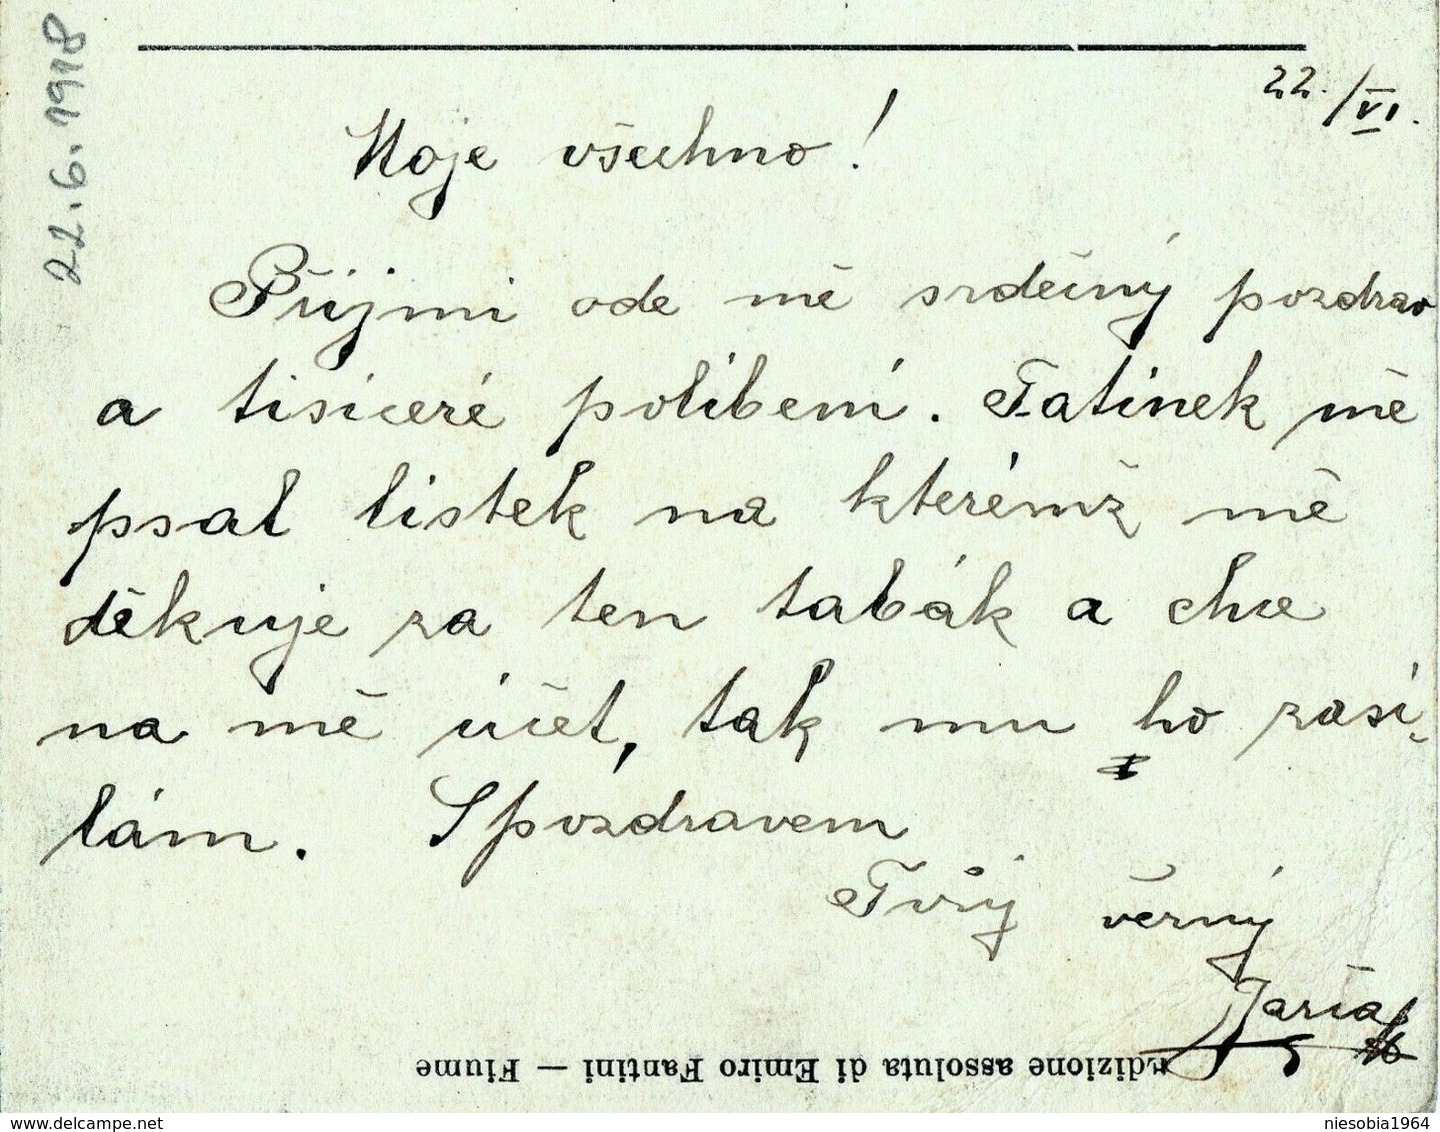 22.6.1918
22./VI.
Moje všechno!
Přijmi ode mě srdečný pozdrav
a tisiceré políbení. Tatínek mě
psal lístek na kterémž mě
děkuje za ten tabák a chce
na mě účet, tak mu ho zasí-
lám. S pozdravem
Tvůj věrný
Jarča
Edizione assoluta di Emiro Fantini — Fiume
niesobia1964